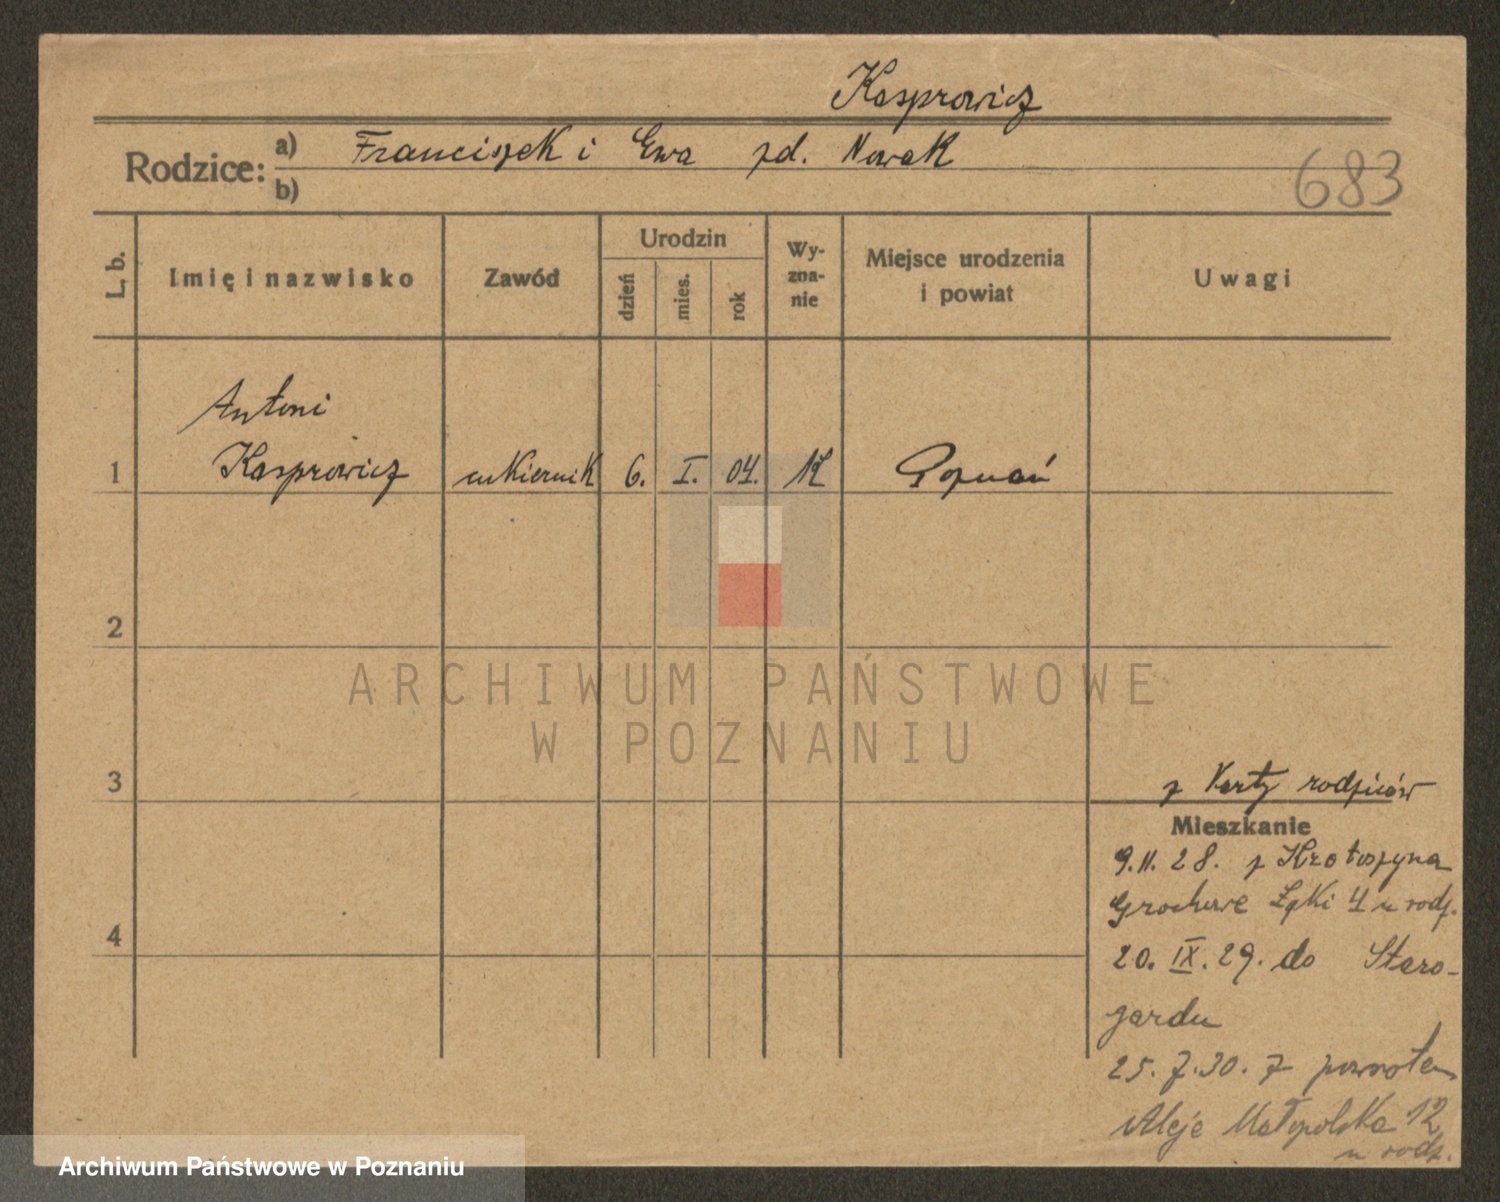 Kasprowicz
Rodzice:
a) Franciszek i Ewa zd. Nowak
b)
683
L. b.
Imię i nazwisko
Zawód
Urodzin
dzień
mies.
rok
Wy-
zna-
nie
Miejsce urodzenia
i powiat
Uwagi
Antoni
1 Kasprowicz cukiernik 6. I. 04. K Poznań
2
ARCHIWUM PAŃSTWOWE
W POZNANIU
3
z karty rodziców
Mieszkanie
9.11.28. z Krotoszyna
Grochowe Łąki 4 u rodz.
4
20. IX. 29. do Staro-
gardu
25. 7. 30. z powrotem
Aleje Małopolska 12
u rodz.
Archiwum Państwowe w Poznaniu